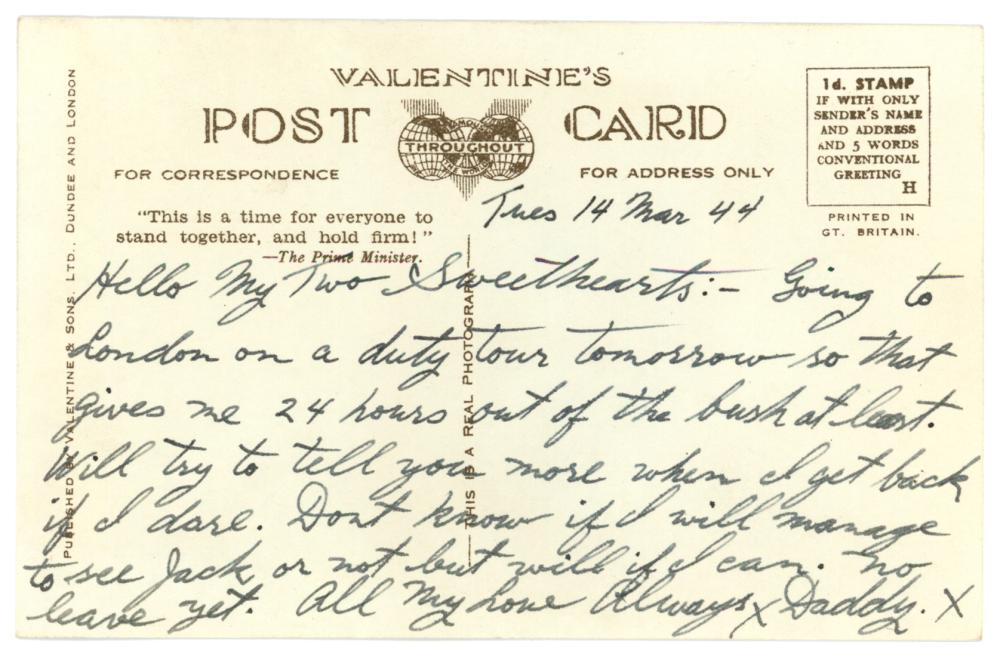 VALENTINE'S
POST CARD
FAMOUS
THROUGHOUT
THE WORLD
FOR CORRESPONDENCE
FOR ADDRESS ONLY
1d. STAMP
IF WITH ONLY
SENDER'S NAME
AND ADDRESS
AND 5 WORDS
CONVENTIONAL
GREETING
H
PRINTED IN
GT. BRITAIN.
"This is a time for everyone to
stand together, and hold firm!"
—The Prime Minister.
PUBLISHED BY VALENTINE & SONS, LTD., DUNDEE AND LONDON
THIS IS A REAL PHOTOGRAPH
Tues 14 Mar 44
Hello My Two Sweethearts:- Going to
London on a duty tour tomorrow so that
gives me 24 hours out of the bush at least.
Will try to tell you more when I get back
if I dare. Dont know if I will manage
to see Jack or not but will if I can. No
leave yet. All My Love Always x Daddy. X